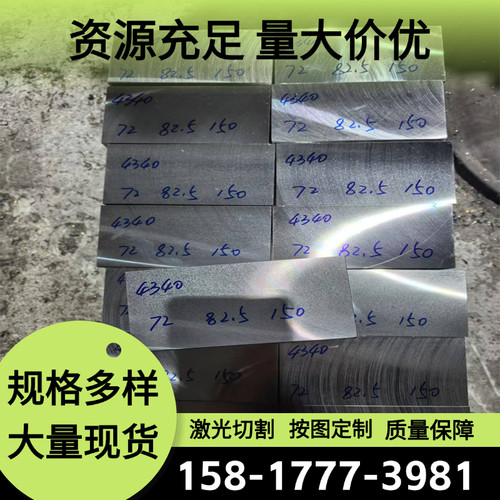 资源充足 量大价优
72 82.5 150
72 82.5 150
4340
72 82.5 150
4340
72 82.5 150
4340
72 82.5 150
4340
72 82.5 150
4340
72 82.5 150
4340
72 82.5 150
4340
72 82.5 150
150
4340
72 82.5 150
规格多样
大量现货
激光切割 按图定制 质量保障
158-1777-3981